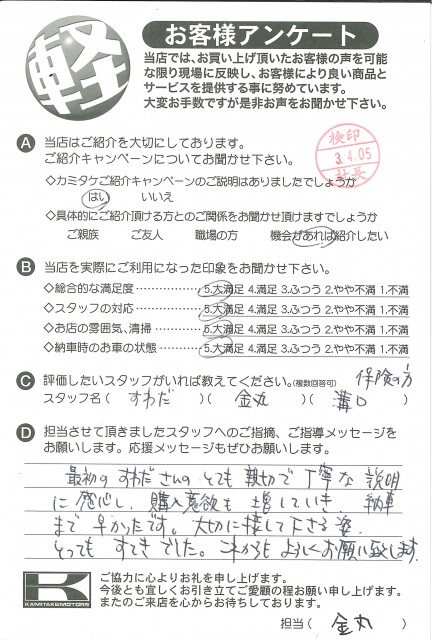 軽
お客様アンケート
当店では、お買い上げ頂いたお客様の声を可能
な限り現場に反映し、お客様により良い商品と
サービスを提供する事に努めています。
大変お手数ですが是非お声をお聞かせ下さい。
A 当店はご紹介を大切にしております。
ご紹介キャンペーンについてお聞かせ下さい。
検印
3.4.05
社長
◇カミタケご紹介キャンペーンのご説明はありましたでしょうか
はい いいえ
◇具体的にご紹介頂ける方とのご関係をお聞かせ頂けますでしょうか
ご親族 ご友人 職場の方 機会があれば紹介したい
B 当店を実際にご利用になった印象をお聞かせ下さい。
◇総合的な満足度 5.大満足 4.満足 3.ふつう 2.やや不満 1.不満
◇スタッフの対応 5.大満足 4.満足 3.ふつう 2.やや不満 1.不満
◇お店の雰囲気、清掃 5.大満足 4.満足 3.ふつう 2.やや不満 1.不満
◇納車時のお車の状態 5.大満足 4.満足 3.ふつう 2.やや不満 1.不満
C 評価したいスタッフがいれば教えてください。(複数回答可) 保険の方
スタッフ名( すわだ )( 金丸 )( 溝口 )
D 担当させて頂きましたスタッフへのご指摘、ご指導メッセージを
お願いします。応援メッセージもぜひお願いします。
最初のすわださんのとても親切で丁寧な説明
に感心し、購入意欲も増していき 納車
まで早かったです。大切に接して下さる姿
とってもすてきでした。これからもよろしくお願い致します。
K
KAMITAKE MOTORS
ご協力に心よりお礼を申し上げます。
今後とも宜しくお引き立てご愛顧の程お願い申し上げます。
またのご来店を心からお待ちしております。
担当( 金丸 )